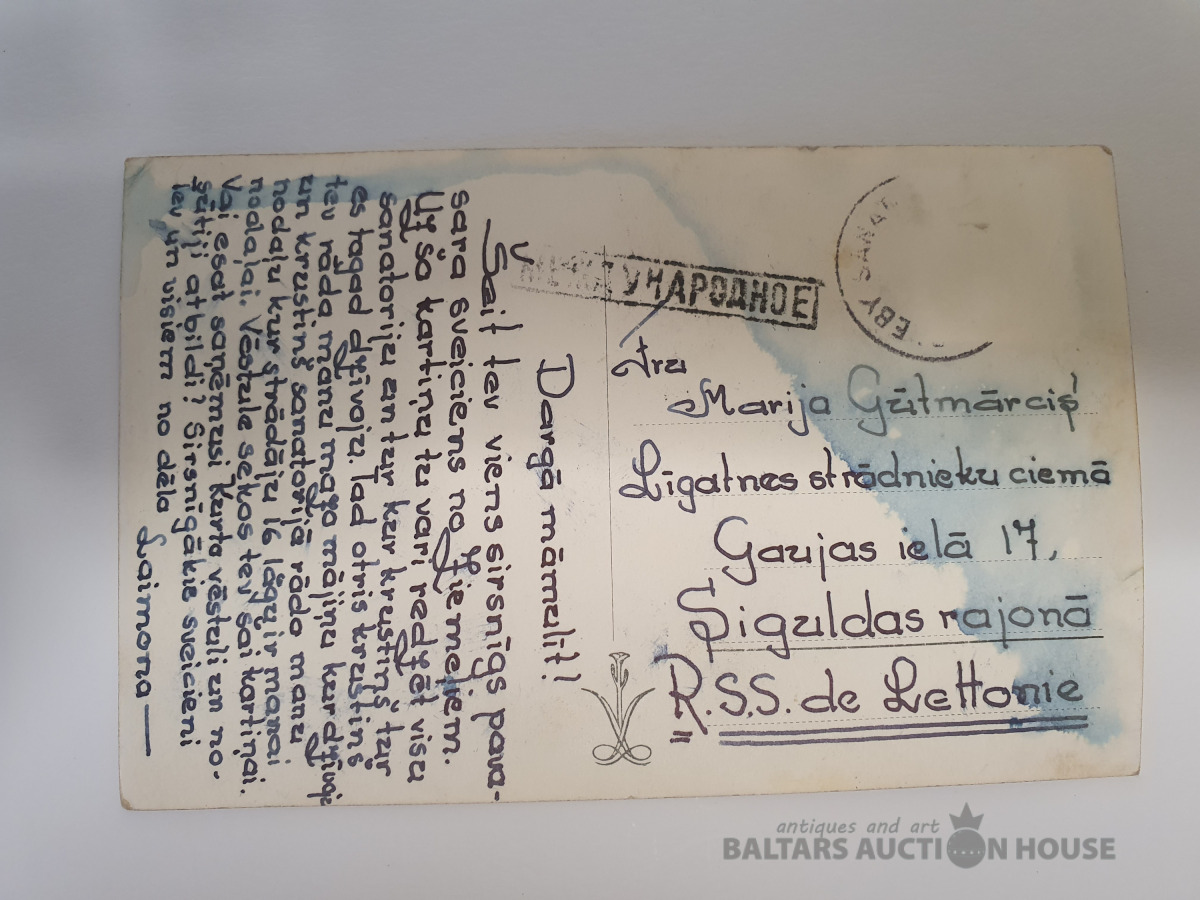 Dargā māmulīt!
Šait tev viens sirsnīgs pava-
sara sveiciens no Ziemeļiem.
Uz šo kartiņu tu vari redzēt visu
sanatoriju un tur kur krustiņš tur
es tagad dzīvoju. Tad otris krustiņš
tev rāda manu mazo mājiņu kur dzīvoj
un krustiņš sanatorijā rāda manu
nodaļu kur strādāju 16 lāgu ir manai
nodaļai. Vēstule sekos tev šai kartiņai.
Vai esat saņēmusi Kurta vēstuli un no-
sūtīji atbildi? Sirsnīgākie sveicieni
tev un visiem no dēla
Laimona
МЕЖДУНАРОДНОЕ
EBY SANAT
Tru
Marija Gūtmārciş
Līgatnes strādnieku ciemā
Gaujas ielā 17,
Siguldas rajonā
R.S.S. de Lettonie
antiques and art
BALTARS AUCTION HOUSE